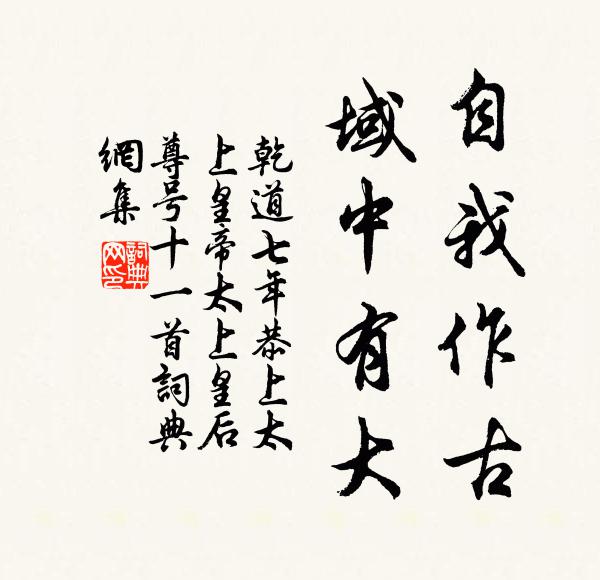 自我作古
域中有大
乾道七年恭上太
上皇帝太上皇后
尊号十一首詞典
網集
詞典
网印